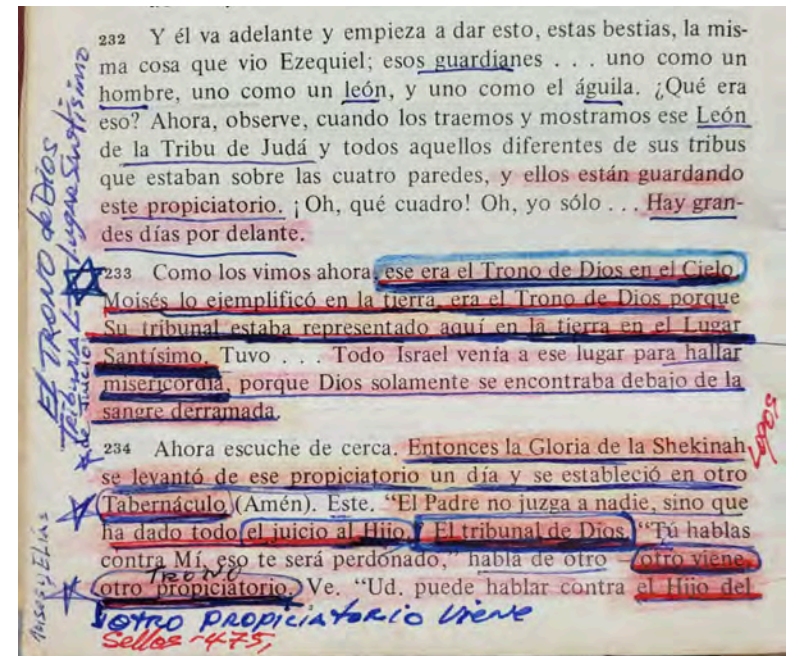 232 Y él va adelante y empieza a dar esto, estas bestias, la mis-
ma cosa que vio Ezequiel; esos guardianes . . . uno como un
hombre, uno como un león, y uno como el águila. ¿Qué era
eso? Ahora, observe, cuando los traemos y mostramos ese León
de la Tribu de Judá y todos aquellos diferentes de sus tribus
que estaban sobre las cuatro paredes, y ellos están guardando
este propiciatorio. ¡Oh, qué cuadro! Oh, yo sólo . . . Hay gran-
des días por delante.
233 Como los vimos ahora, ese era el Trono de Dios en el Cielo.
Moisés lo ejemplificó en la tierra, era el Trono de Dios porque
Su tribunal estaba representado aquí en la tierra en el Lugar
Santísimo. Tuvo . . . Todo Israel venía a ese lugar para hallar
misericordia, porque Dios solamente se encontraba debajo de la
sangre derramada.
234 Ahora escuche de cerca. Entonces la Gloria de la Shekinah
se levantó de ese propiciatorio un día y se estableció en otro
Tabernáculo (Amén). Este. “El Padre no juzga a nadie, sino que
ha dado todo el juicio al Hijo. El tribunal de Dios. “Tú hablas
contra Mí, eso te será perdonado,” habla de otro — otro viene,
TRONO
otro propiciatorio. Ve. “Ud. puede hablar contra el Hijo del
OTRO PROPICIATORIO viene
Sellos -475,
El TRONO de Dios
TRIBUNAL - Lugar Santísimo
de Juicio.
Moises y Elías